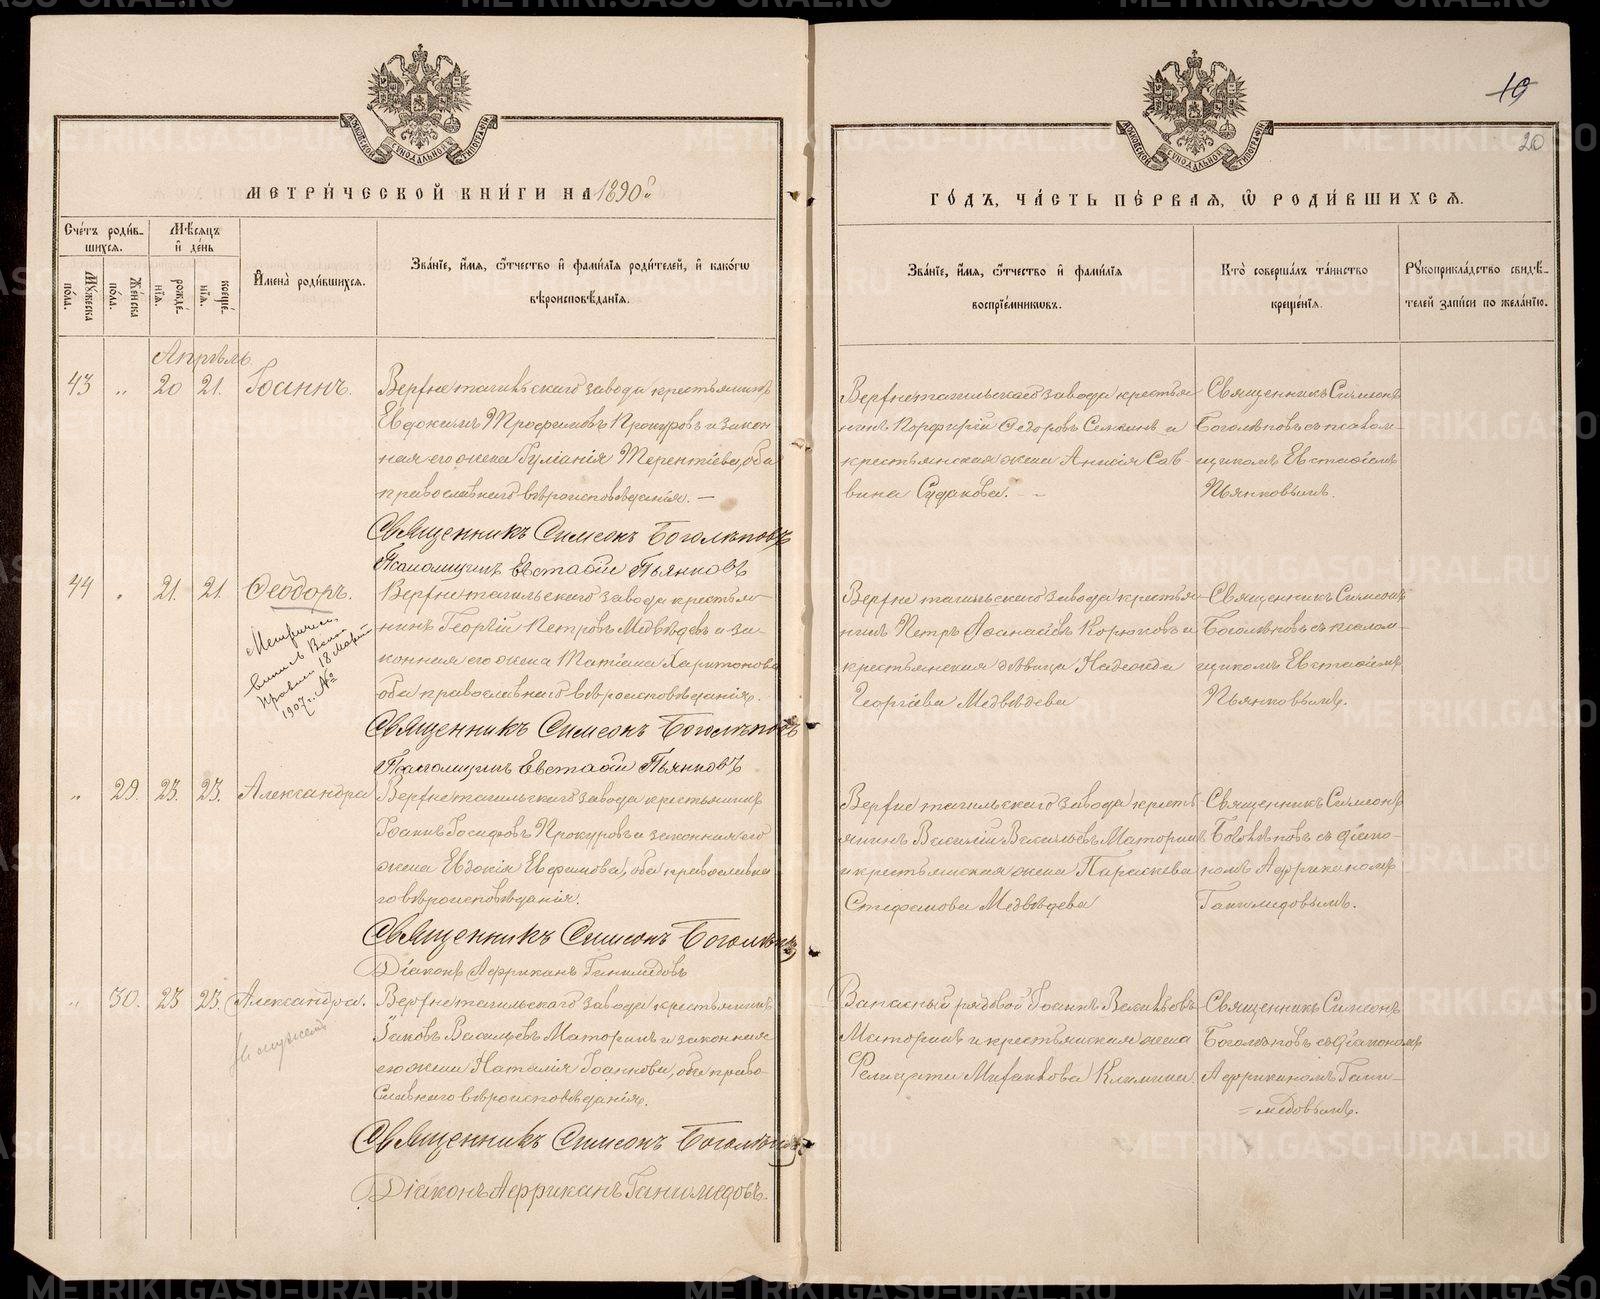 МОСКОВСКОЙ СѴНОДАЛЬНОЙ ТИПОГРАФІИ
МЕТРИ́ЧЕСКОЙ КНИ́ГИ НА 1890й
Сче́тъ роди́в-
шихся.
Мѣ́сяцъ
и де́нь
Му́жеска
по́ла.
Же́нска
по́ла.
рожде́-
нїя.
креще́-
нїя.
И҆мена̀ роди́вшихся.
Зва́нїе, и҆́мя, ѻ҆́тчество и҆ фами́лїя роди́телей, и҆ како́гѡ
вѣроисповѣ́данїя.
Апрѣль
43 „ 20 21. Іоаннъ.
Верхнетагильскаго завода крестьянинъ
Евдокимъ Трофимовъ Прокуровъ и закон
ная его жена Іуліанія Терентіева, оба
православнаго вѣроисповѣданія. —
Священникъ Симеонъ Боголѣповъ
Псаломщикъ Евстафій Пьянковъ
44 „ 21. 21. Ѳеодоръ.
Верхнетагильскаго завода крестья-
нинъ Георгій Петровъ Медвѣдевъ и за-
конная его жена Татіана Харитонова
оба православнаго вѣроисповѣданія.
Священникъ Симеонъ Боголѣповъ
Псаломщикъ Евстафій Пьянковъ
18 Марта
1907. №
„ 29. 23. 23. Александра
Верхнетагильскаго завода крестьянинъ
Іоаннъ Іосифовъ Прокуровъ и законная его
жена Евдокія Евфимова, оба православна
го вѣроисповѣданія.
Священникъ Симеонъ Боголѣповъ
Діаконъ Африканъ Ганимедовъ
„ 30. 23 23. Александра.
Верхнетагильскаго завода крестьянинъ
Іаковъ Васильевъ Маторинъ и законная
его жена Наталія Іоаннова, оба право-
славнаго вѣроисповѣданія.
Священникъ Симеонъ Боголѣповъ
Діаконъ Африканъ Ганимедовъ.
19
20
МОСКОВСКОЙ СѴНОДАЛЬНОЙ ТИПОГРАФІИ
ГО́ДЪ, ЧА́СТЬ ПЕ́РВАЯ, Ѡ҆ РОДИ́ВШИХСЯ.
Зва́нїе, и҆́мя, ѻ҆́тчество и҆ фами́лїя
воспрїе́мникѡвъ.
Кто̀ соверша́лъ та́инство
креще́нїя.
Рꙋкоприкла́дство свидѣ́-
телей за́писи по жела́нїю.
Верхнетагильскаго завода крестья
нинъ Порфирій Ѳедоровъ Семкинъ и
крестьянская жена Анисія Сав-
вина Судакова. —
Священникъ Симеонъ
Боголѣповъ съ псалом-
щикомъ Евстафіемъ
Пьянковымъ.
Верхнетагильскаго завода крестья
нинъ Петръ Аѳанасіевъ Корюковъ и
крестьянская дѣвица Надежда
Георгіева Медвѣдева
Священникъ Симеонъ
Боголѣповъ съ псалом-
щикомъ Евстафіемъ
Пьянковымъ.
Верхнетагильскаго завода кресть
янинъ Василій Васильевъ Маторинъ
и крестьянская жена Параскева
Стефанова Медвѣдева
Священникъ Симеонъ
Боголѣповъ съ діако-
номъ Африканомъ
Ганимедовымъ.
Запасный рядовой Іоаннъ Васильевъ
Маторинъ и крестьянская жена
Фелицата Михайлова Климина.
Священникъ Симеонъ
Боголѣповъ съ діакономъ
Африканомъ Гани-
=медовымъ.
METRIKI.GASO-URAL.RU